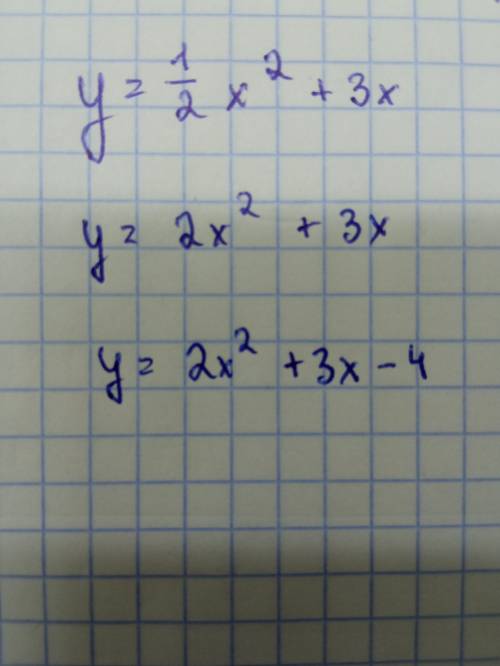 y = 1/2 x² + 3x
y = 2x² + 3x
y = 2x² + 3x - 4